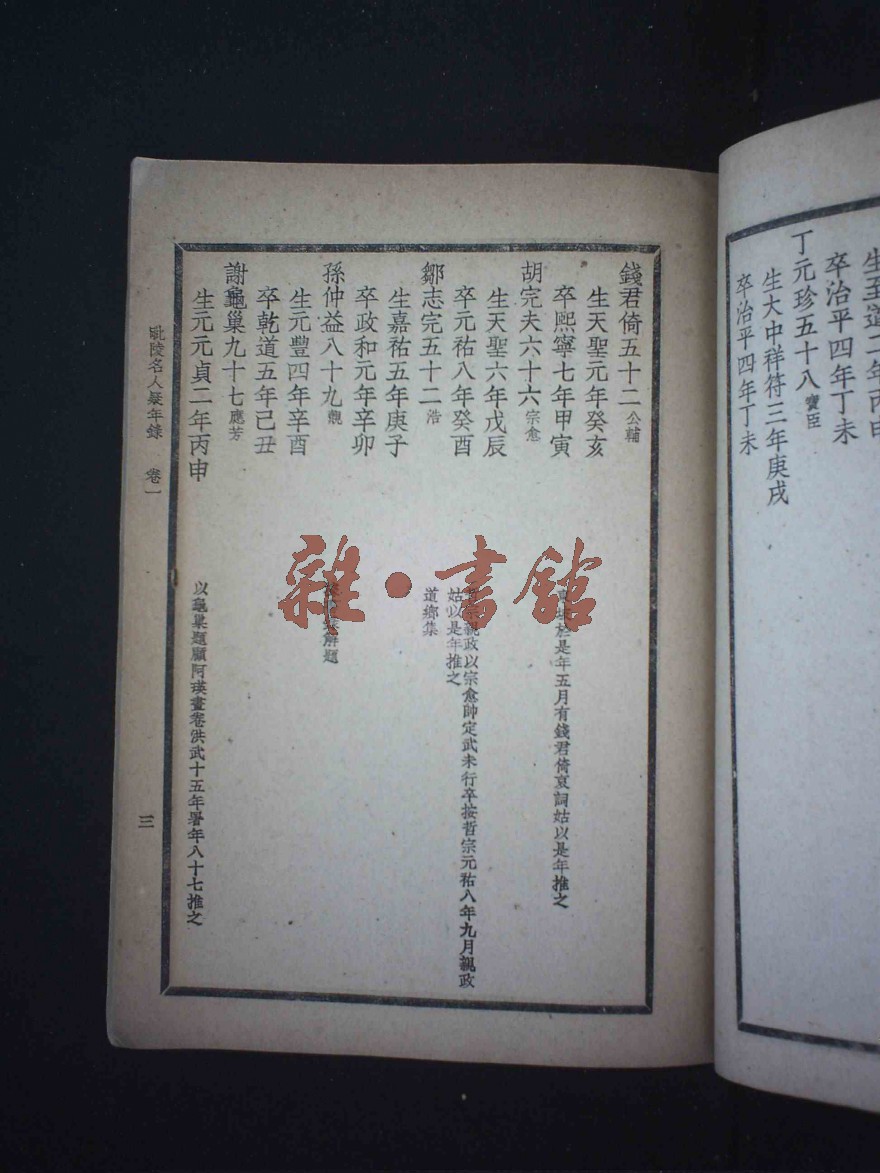 生至道二年丙申
卒治平四年丁未
丁元珍五十八寶臣
生大中祥符三年庚戌
卒治平四年丁未
錢君倚五十二公輔
生天聖元年癸亥
卒熙寧七年甲寅
於是年五月有錢君倚哀詞姑以是年推之
胡完夫六十六宗愈
生天聖六年戊辰
卒元祐八年癸酉
宗親政以宗愈帥定武未行卒按哲宗元祐八年九月親政
姑以是年推之
鄒志完五十二浩
道鄉集
生嘉祐五年庚子
卒政和元年辛卯
孫仲益八十九覿
解題
生元豐四年辛酉
卒乾道五年己丑
謝龜巢九十七應芳
生元元貞二年丙申
以龜巢題顧阿瑛畫卷洪武十五年署年八十七推之
毗陵名人疑年錄 卷一
三
雜·書館